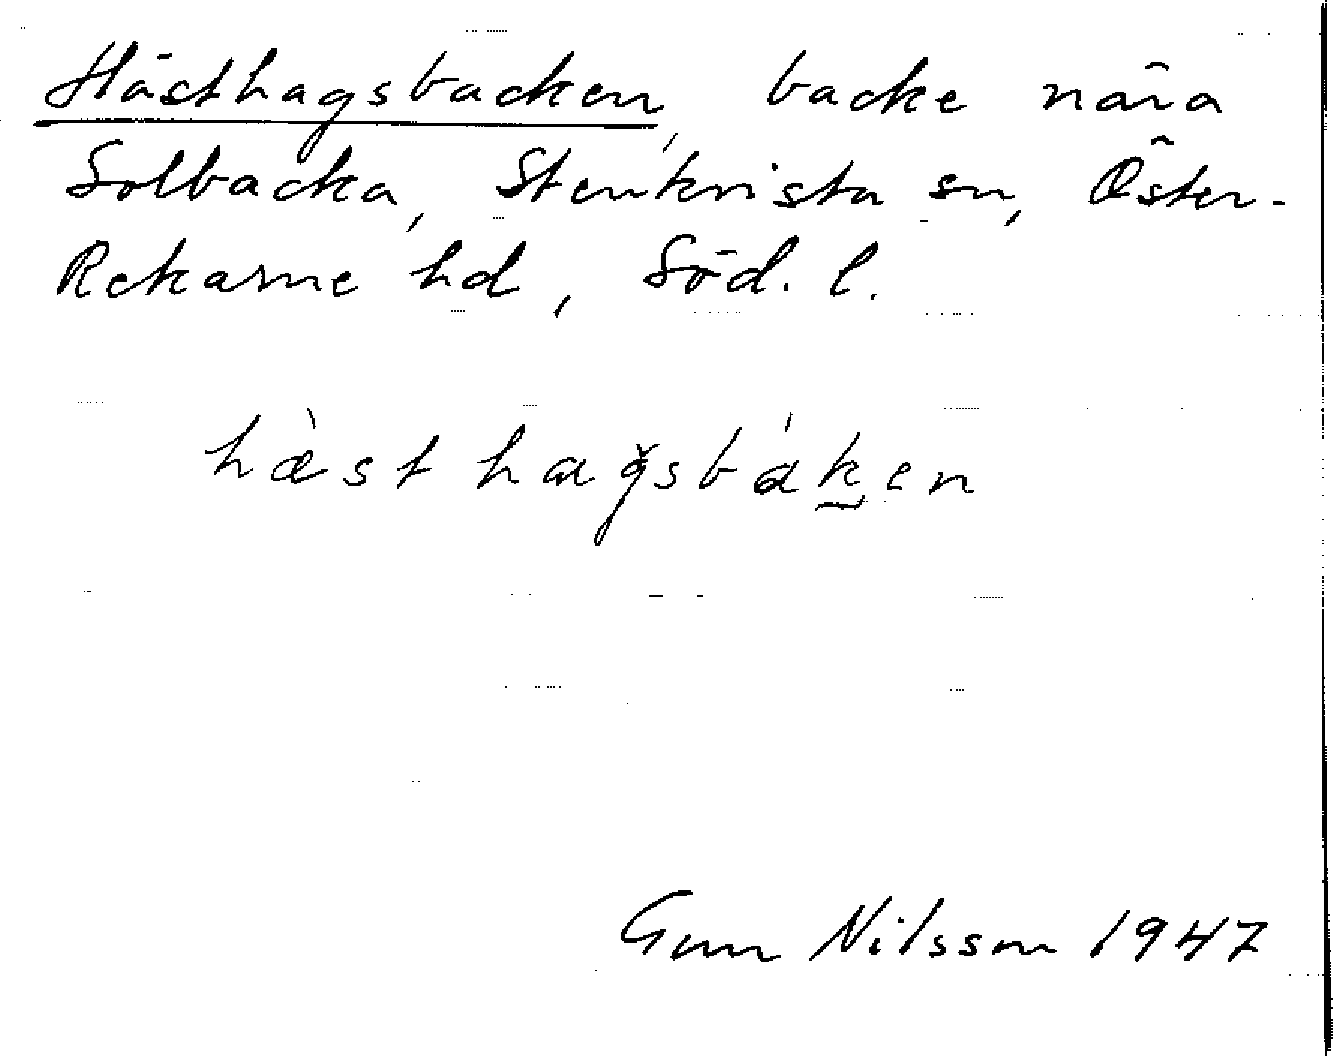 Hästhagsbacken, backe nära
Solbacka, Stenkvista sn, Öster-
Rekarne hd, Söd. l.
hæ̀sthağsbák̲en
Gun Nilsson 1947